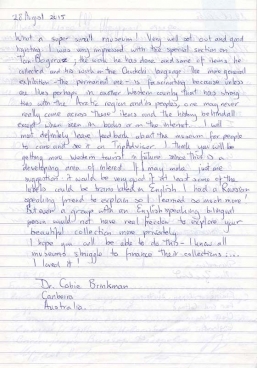 28 August 2015
What a super small museum! Very well set out and good
lighting. I was very impressed with the special section on
the work he has done and some of items he
collected and his work in the language. The more general
exhibition - the permanent one - is fascinating because unless
one lives perhaps in another western country that has strong
ties with the Arctic region and its peoples, one may never
really come across these items and the history behind all
except when seen in books or on the internet. I will
most definitely leave feedback about the museum for people
to come and see it on TripAdvisor. I think you will be
getting more western tourists in future since this is a
developing area of interest. If I may make just one
suggestion it would be very good if at least some of the
labels could be translated in English. I had a Russian
speaking friend to explain so I learned so much more!
But even a group with an English speaking bilingual
person would not have real freedom to explore your
beautiful collection more privately.
I hope you will be able to do this - I know all
museums struggle to finance their collections....
I loved it!
Dr. Cobie Brinkman
Canberra
Australia.